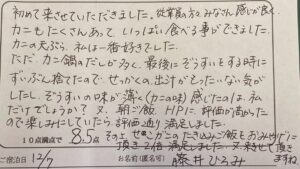 初めて来させていただきました。従業員の方々みなさん感じが良く、
カニもたくさんあって、いっぱい食べる事ができました。
カニの天ぷら、私は一番好きでした。
ただ、カニ鍋のだしが多く、最後にぞうすいをする時に
ずいぶん捨てたので、せっかくの出汁がもったいない気が
したし、ぞうすいの味が薄く(カニの味)感じたのは、私
だけでしょうか? 又、朝ご飯、HPに、評価が高かった
ので楽しみにしていたら評価通り満足しました。
10点満点で 8.5点 その上、せいこガニのたき込みご飯もおみやげに
頂き2倍満足しました。又、来させて頂き
ますね
ご宿泊日 12/7 お名前(匿名可) 藤井ひろみ